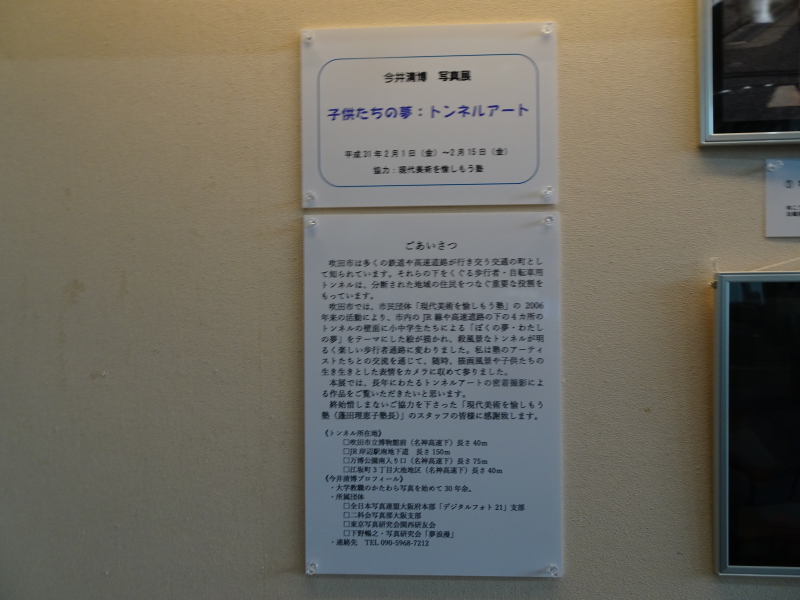 今井清博　写真展
子供たちの夢：トンネルアート
平成31年2月1日（金）～2月15日（金）
協力：現代美術を愉しもう塾
ごあいさつ
吹田市は多くの鉄道や高速道路が行き交う交通の町とし
て知られています。それらの下をくぐる歩行者・自転車用
トンネルは、分断された地域の住民をつなぐ重要な役割を
もっています。
吹田市では、市民団体「現代美術を愉しもう塾」の 2006
年来の活動により、市内の JR 線や高速道路の下の４カ所の
トンネルの壁面に小中学生たちによる「ぼくの夢・わたし
の夢」をテーマにした絵が描かれ、殺風景なトンネルが明
るく楽しい歩行者通路に変わりました。私は塾のアーティ
ストたちとの交流を通じて、随時、描画風景や子供たちの
生き生きとした表情をカメラに収めて参りました。
本展では、長年にわたるトンネルアートの密着撮影によ
る作品をご覧いただきたいと思います。
終始惜しまないご協力を下さった「現代美術を愉しもう
塾（蓮田理恵子塾長）」のスタッフの皆様に感謝致します。
《トンネル所在地》
□吹田市立博物館前（名神高速下）長さ 40m
□JR 岸辺駅南地下道　長さ 150m
□万博公園南入り口（名神高速下）長さ 75m
□江坂町３丁目大池地区（名神高速下）長さ 40m
《今井清博プロフィール》
・大学教職のかたわら写真を始めて 30 年余。
・所属団体
□全日本写真連盟大阪府本部「デジタルフォト 21」支部
□二科会写真部大阪支部
□東京写真研究会関西研友会
□下野暢之・写真研究会「夢浪漫」
・連絡先　TEL 090-5968-7212
①